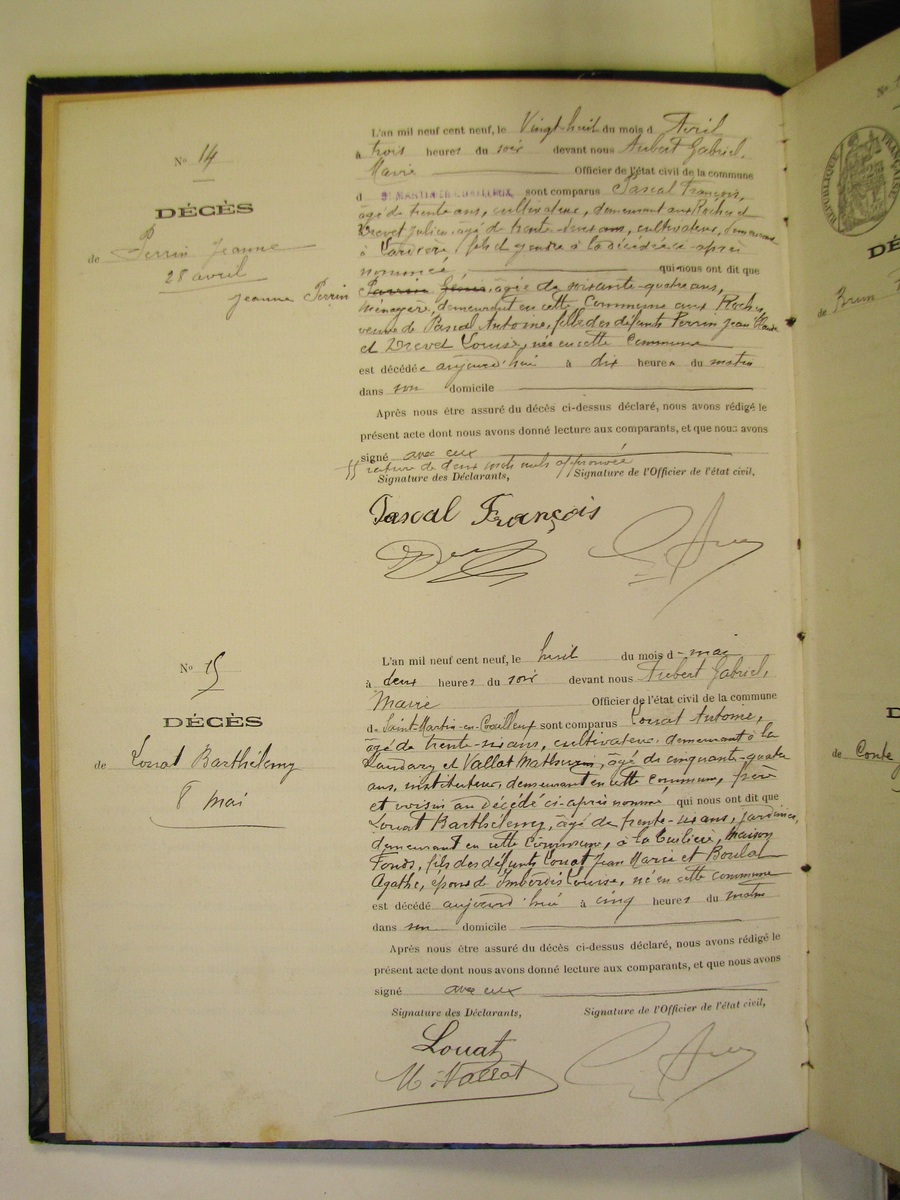 N° 14
DÉCÈS
de Perrin Jeanne
28 avril
L'an mil neuf cent neuf, le Vingt-huit du mois d Avril
à trois heures du soir devant nous Aubert Gabriel,
Maire Officier de l'état civil de la commune
d St MARTIN-EN-COAILLEUX, sont comparus Pascal François,
âgé de trente ans, cultivateur, demeurant aux Roches et
Drevet Julien, âgé de trente-deux ans, cultivateur, demeurant
à , fils et gendre à la décédée ci-après
nommée, qui nous ont dit que
Jeanne Perrin
Perrin âgée de soixante-quatre ans,
ménagère, demeurant en cette Commune aux Roches,
veuve de Pascal Antoine, fille des défunts Perrin Jean Claude
et Drevet Louise, née en cette Commune
est décédée aujourd'hui à dix heures du matin
dans son domicile
Après nous être assuré du décès ci-dessus déclaré, nous avons rédigé le
présent acte dont nous avons donné lecture aux comparants, et que nous avons
signé avec eux
rature de deux mots nuls approuvée
Signature des Déclarants, Signature de l'Officier de l'état civil,
Pascal François
N° 15
DÉCÈS
de Louat Barthélemy
8 mai
L'an mil neuf cent neuf, le huit du mois d mai
à deux heures du soir devant nous Aubert Gabriel,
Maire Officier de l'état civil de la commune
d Saint-Martin-en-Coailleux sont comparus Louat Antoine,
âgé de trente-six ans, cultivateur, demeurant à la
et Vallat Mathurin, âgé de cinquante-quatre
ans, instituteur, demeurant en cette commune, frère
et voisin au décédé ci-après nommé qui nous ont dit que
Louat Barthélemy, âgé de trente-six ans, jardinier,
demeurant en cette Commune, à la , maison
Fond, fils des défunts Louat Jean Marie et Boulat
Agathe, époux de Louise, né en cette commune
est décédé aujourd'hui à cinq heures du matin
dans son domicile
Après nous être assuré du décès ci-dessus déclaré, nous avons rédigé le
présent acte dont nous avons donné lecture aux comparants, et que nous avons
signé avec eux
Signature des Déclarants, Signature de l'Officier de l'état civil,
Louat
M. Vallat
RÉPUBLIQUE FRANÇAISE
N°
DÉ
de Brun
D
de Conte